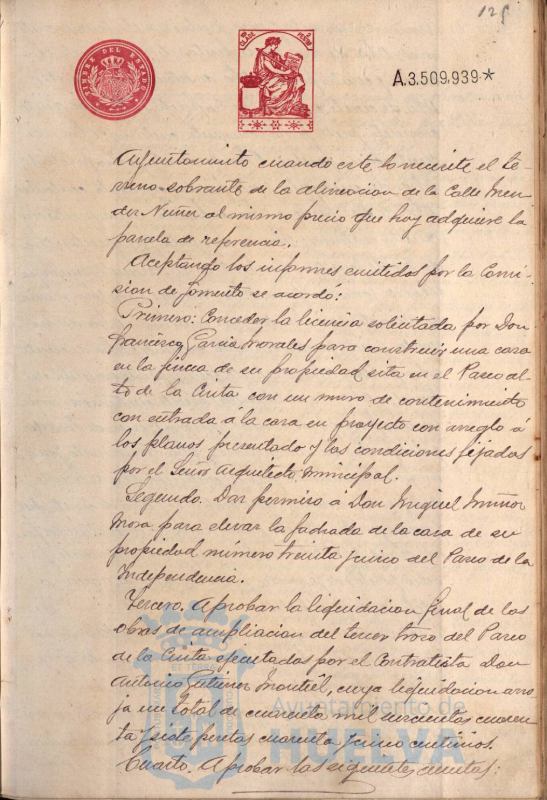 125
TIMBRE DEL ESTADO
CLASE
PESETAS
A.3.509.939*
Ayuntamiento cuando este lo necesite el te-
rreno sobrante de la alineacion de la Calle Men-
dez Nuñez al mismo precio que hoy adquiere la
parcela de referencia.
Aceptando los informes emitidos por la Comi-
sion de fomento se acordó:
Primero: Conceder la licencia solicitada por Don
Francisco Garcia Morales para construir una casa
en la finca de su propiedad sita en el Paseo al-
to de la Cinta con un muro de contenimiento
con entrada á la casa en proyecto con arreglo á
los planos presentado y las condiciones fijadas
por el Señor Arquitecto municipal.
Segundo. Dar permiso á Don Miguel Muñoz
Mora para elevar la fachada de la casa de su
propiedad número treinta y cinco del Paseo de la
Independencia.
Tercero. Aprobar la liquidacion final de las
obras de ampliacion del tercer trozo del Paseo
de la Cinta ejecutadas por el Contratista Don
Antonio Gutierrez Montiel, cuya liquidacion arro
ja un total de cuarenta mil cuaren
ta y siete pesetas cuarenta y cinco centimos.
Cuarto. Aprobar las siguientes cuentas:
Ayuntamiento de
HUELVA